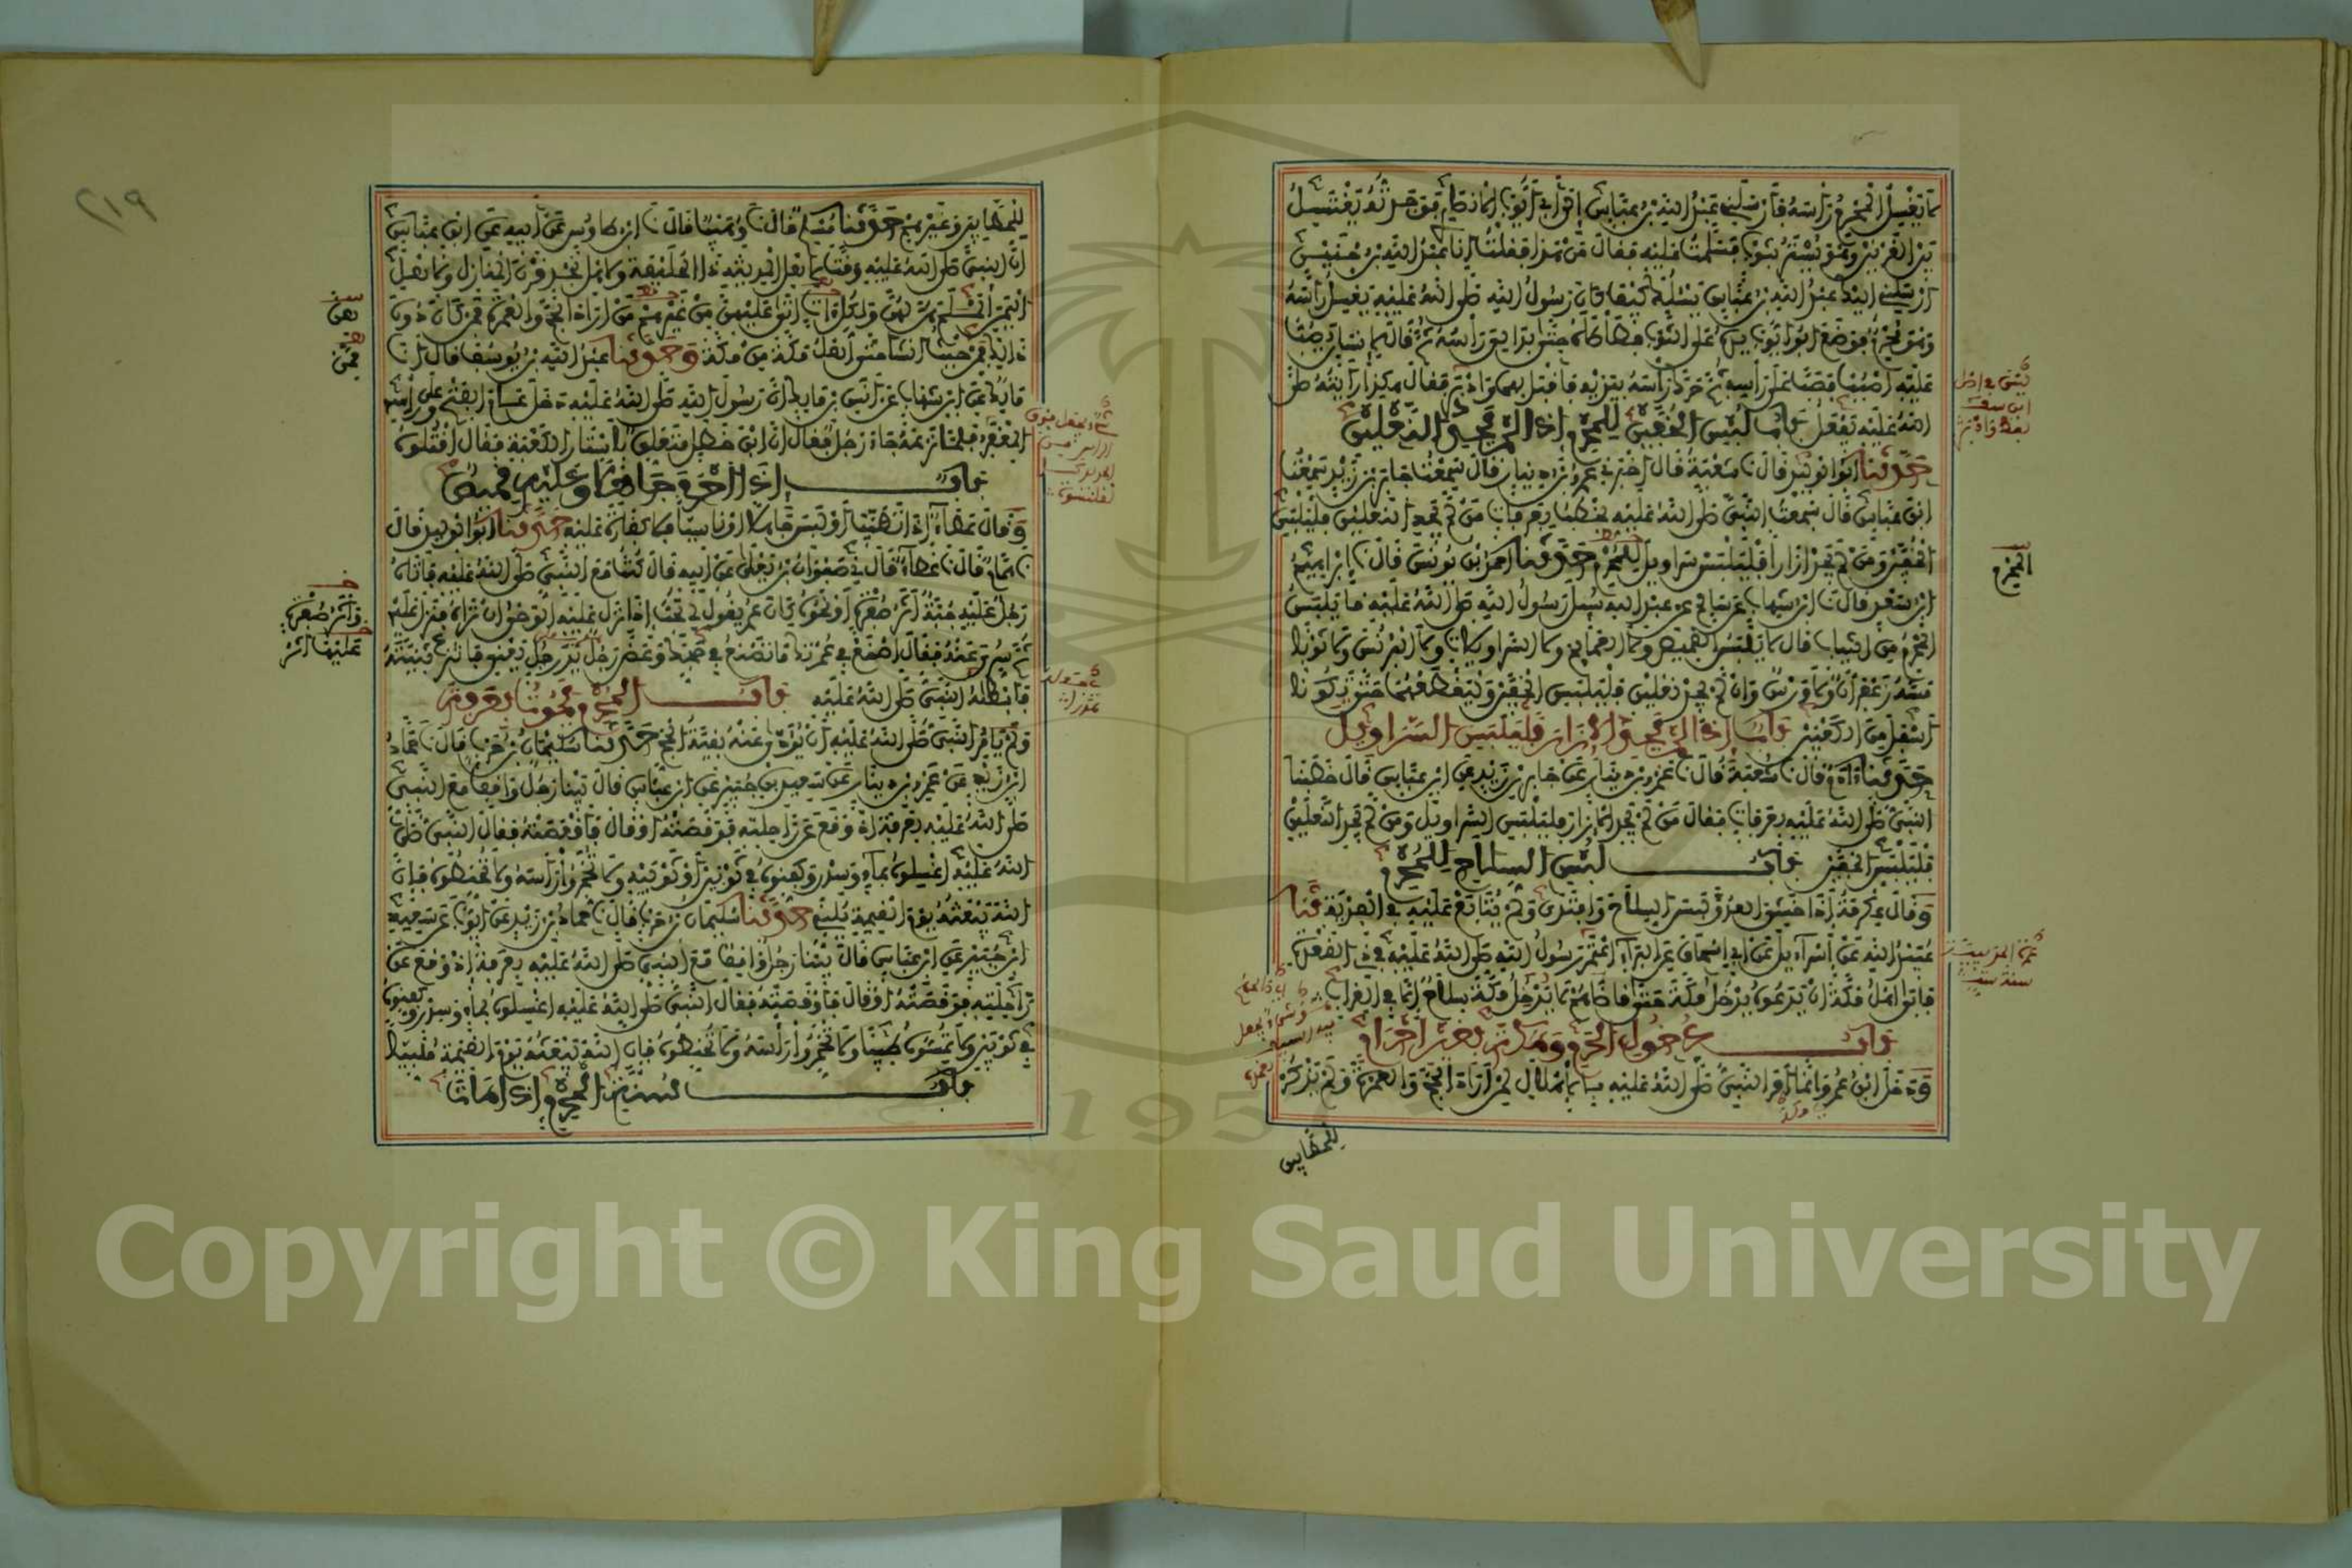 لا يغسل المحرم رأسه فأرسلني عبد الله بن عباس إلى أبي أيوب الأنصاري فوجدته يغتسل
بين القرنين وهو يستر بثوب فسلمت عليه فقال من هذا فقلت أنا عبد الله بن حنين
أرسلني إليك عبد الله بن عباس يسئلك كيف كان رسول الله صلى الله عليه يغسل رأسه
وهو محرم فوضع أبو أيوب يده على الثوب فطأطأه حتى بدا لي رأسه ثم قال لإنسان يصب
عليه اصبب فصب على رأسه ثم حرك رأسه بيديه فأقبل بهما وأدبر فقال هكذا رأيته صلى
الله عليه يفعل باب لبس الخفين للمحرم إذا لم يجد النعلين
حدثنا أبو الوليد قال شعبة قال أخبرني عمرو بن دينار قال سمعت جابر بن زيد سمعت
ابن عباس قال سمعت النبي صلى الله عليه يخطب بعرفات من لم يجد النعلين فليلبس
الخفين ومن لم يجد إزارا فليلبس سراويل للمحرم حدثنا أحمد بن يونس قال إبراهيم
ابن سعد قال ابن شهاب عن سالم عن عبد الله سئل رسول الله صلى الله عليه ما يلبس
المحرم من الثياب قال لا يلبس القميص ولا العمائم ولا السراويلات ولا البرنس ولا ثوبا
مسه زعفران ولا ورس وإن لم يجد نعلين فليلبس الخفين وليقطعهما حتى يكونا
أسفل من الكعبين باب إذا لم يجد الإزار فليلبس السراويل
حدثنا آدم قال شعبة قال عمرو بن دينار عن جابر بن زيد عن ابن عباس قال خطبنا
النبي صلى الله عليه بعرفات فقال من لم يجد الإزار فليلبس السراويل ومن لم يجد النعلين
فليلبس الخفين باب لبس السلاح للمحرم
وقال عكرمة إذا خشي العدو لبس السلاح وافتدى ولم يتابع عليه في الفدية حدثنا
عبيد الله عن إسرائيل عن أبي إسحاق عن البراء اعتمر رسول الله صلى الله عليه في ذي القعدة
فأبى أهل مكة أن يدعوه يدخل مكة حتى قاضاهم لا يدخل مكة سلاح إلا في القراب
باب دخول الحرم ومكة بغير إحرام
ودخل ابن عمر وإنما أمر النبي صلى الله عليه بالإهلال لمن أراد الحج والعمرة ولم يذكره
المحرم
للحطابين
للحطابين وغيرهم حدثنا مسلم قال وهيب قال ابن طاوس عن أبيه عن ابن عباس
أن النبي صلى الله عليه وقت لأهل المدينة ذا الحليفة ولأهل نجد قرن المنازل ولأهل
اليمن ألملم هن لهن ولكل آت أتى عليهن من غيرهم من أراد الحج والعمرة فمن كان دون
ذلك فمن حيث أنشأ حتى أهل مكة من مكة وحدثنا عبد الله بن يوسف قال
مالك عن ابن شهاب عن أنس بن مالك أن رسول الله صلى الله عليه دخل عام الفتح وعلى رأسه
المغفر فلما نزعه جاء رجل فقال إن ابن خطل متعلق بأستار الكعبة فقال اقتلوه
باب إذا أحرم جاهلا وعليه قميص
وقال عطاء إذا تطيب أو لبس جاهلا أو ناسيا فلا كفارة عليه حدثنا أبو الوليد قال
همام قال عطاء قال صفوان بن يعلى عن أبيه قال كنت مع النبي صلى الله عليه فأتاه
رجل عليه جبة أثر صفرة أو نحوه كان عمر يقول لي تحب إذا نزل عليه الوحي أن تراه فنزل عليه
ثم سري عنه فقال اصنع في عمرتك ما تصنع في حجك وعض رجل يد رجل يعني فانتزع ثنيته
فأبطله النبي صلى الله عليه باب المحرم يموت بعرفة
ولم يأمر النبي صلى الله عليه أن يؤدى عنه بقية الحج حدثنا سليمان بن حرب قال حماد
ابن زيد عن عمرو بن دينار عن سعيد بن جبير عن ابن عباس قال بينا رجل واقف مع النبي
صلى الله عليه بعرفة إذ وقع عن راحلته فوقصته أو قال فأقعصته فقال النبي صلى
الله عليه اغسلوه بماء وسدر وكفنوه في ثوبين أو ثوبيه ولا تخمروا رأسه ولا تحنطوه فإن
الله يبعثه يوم القيمة يلبي حدثنا سليمان بن حرب قال حماد بن زيد عن أيوب عن سعيد
ابن جبير عن ابن عباس قال بينا رجل واقف مع النبي صلى الله عليه بعرفة إذ وقع عن
راحلته فوقصته أو قال فأوقصته فقال النبي صلى الله عليه اغسلوه بماء وسدر وكفنوه
في ثوبين ولا تمسوه طيبا ولا تخمروا رأسه ولا تحنطوه فإن الله يبعثه يوم القيمة ملبيا
باب سنة المحرم إذا مات
٢١٩
Copyright © King Saud University
1957